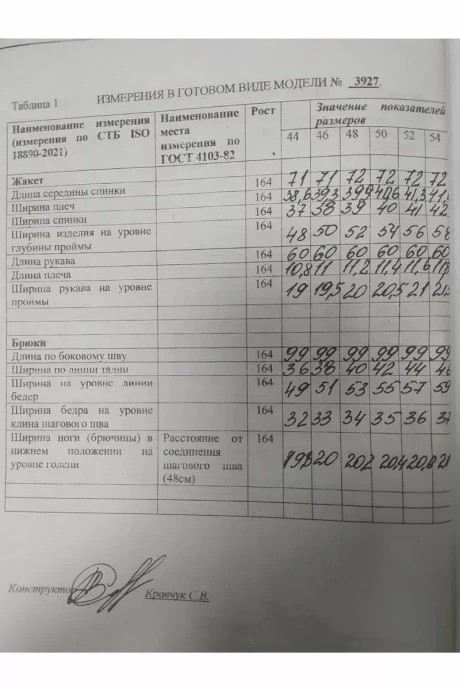 Таблица 1 ИЗМЕРЕНИЯ В ГОТОВОМ ВИДЕ МОДЕЛИ № 3927.
Наименование измерения (измерения по СТБ ISO 18890-2021) Наименование места измерения по ГОСТ 4103-82 Рост Значение показателей размеров
44 46 48 50 52 54
Жакет
Длина середины спинки 164 71 71 72 72 72 72
Ширина плеч 164 38,6 39,3 39,9 40,6 41,3
Ширина спинки 164 37 38 39 40 41 42
Ширина изделия на уровне глубины проймы 164 48 50 52 54 56 58
Длина рукава 164 60 60 60 60 60 60
Длина плеча 164 10,8 11 11,2 11,4 11,6
Ширина рукава на уровне проймы 164 19 19,5 20 20,5 21
Брюки
Длина по боковому шву 164 99 99 99 99 99 99
Ширина по линии талии 164 36 38 40 42 44 46
Ширина на уровне линии бедер 164 49 51 53 55 57 59
Ширина бедра на уровне клина шагового шва 164 32 33 34 35 36 37
Ширина ноги (брючины) в нижнем положении на уровне голени Расстояние от соединения шагового шва (48см) 164 20 20,2 20,4
Конструктор Кравчук С.В.